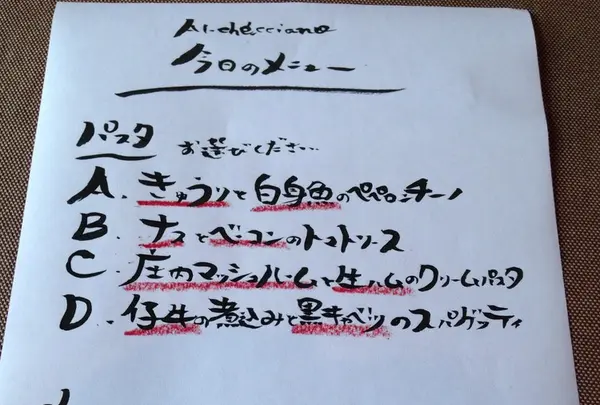 Al-chécciano
今日のメニュー
パスタ お選びください…
A. きゅうりと白身魚のペペロンチーノ
B. ナスとベーコンのトマトソース
C. 庄内マッシュルームと生ハムのクリームパスタ
D. 仔牛の煮込みと黒キャベツのスパゲッティ